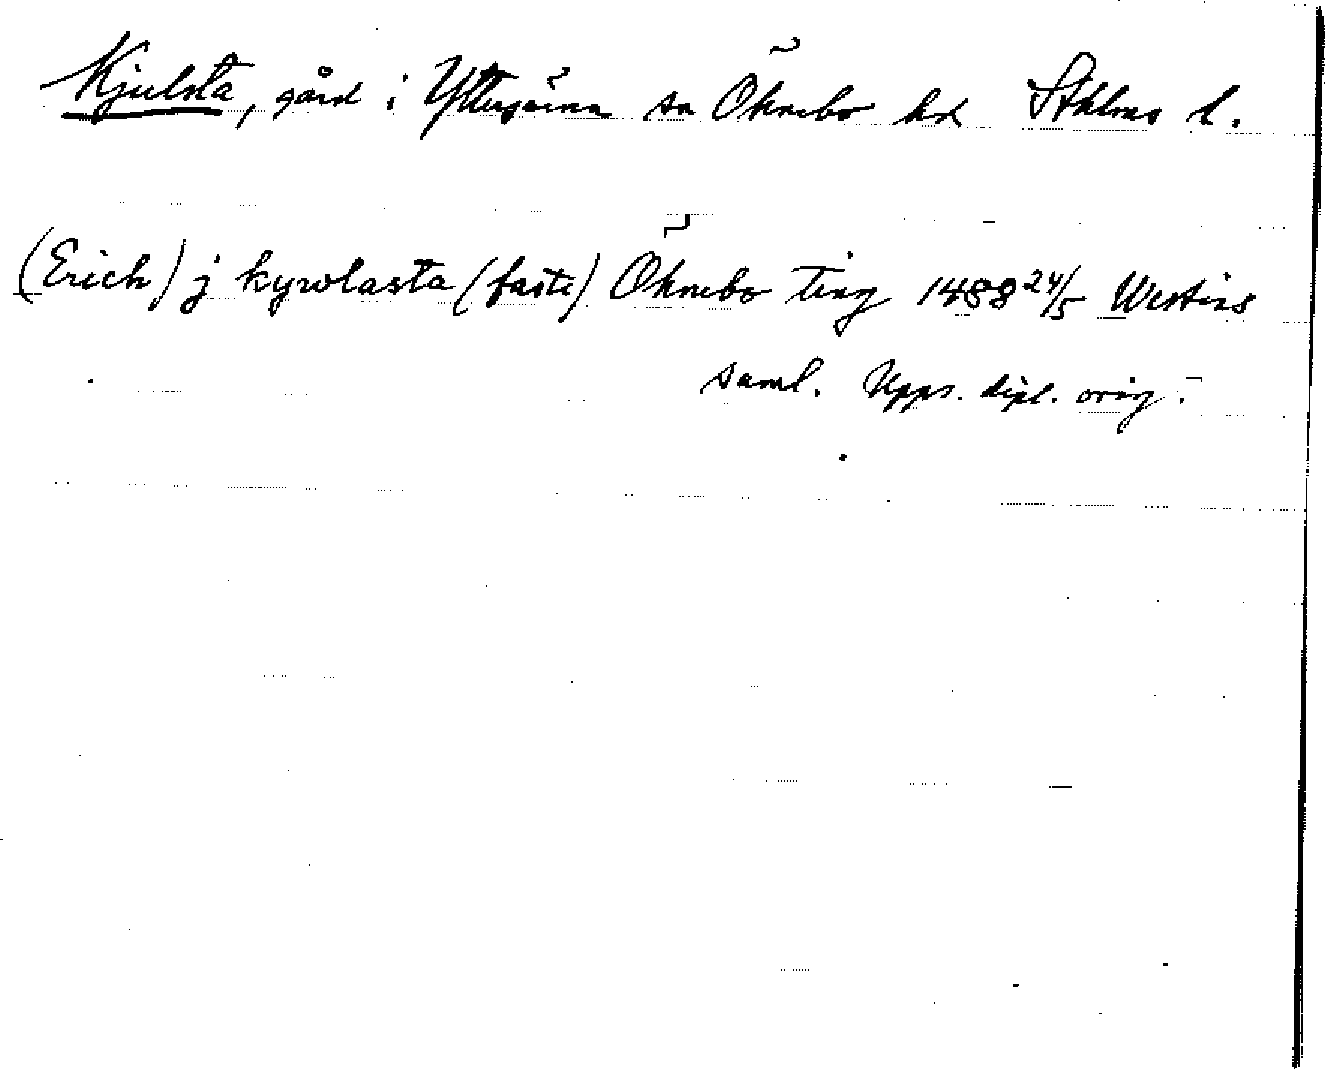 Kjulsta, gård i Ytterjärna sn Öknebo hd Sthlms l.
(Erich) j kyrolasta (faste) Öknebo ting 1488 24/5 Westins
saml. Upps. dipl. orig.